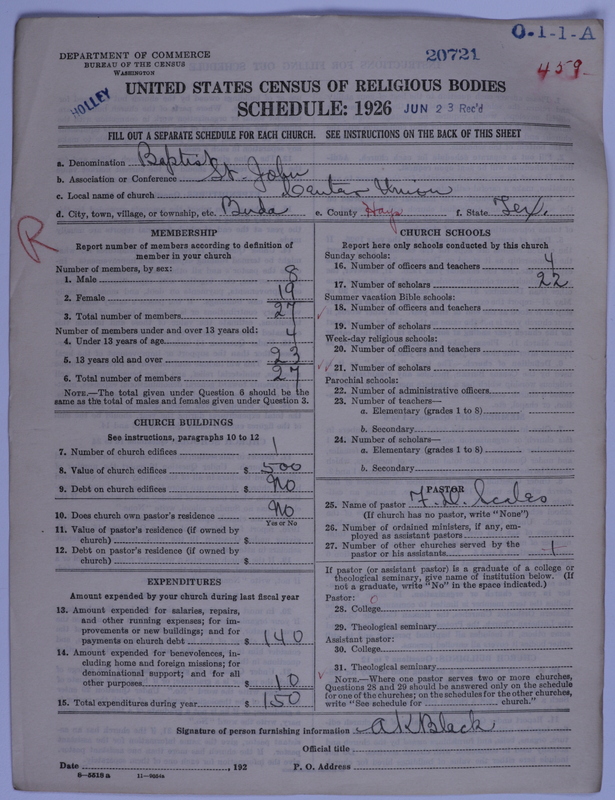 O-1-1-A
DEPARTMENT OF COMMERCE
BUREAU OF THE CENSUS
WASHINGTON
20721
459
HOLLEY
UNITED STATES CENSUS OF RELIGIOUS BODIES
SCHEDULE: 1926 JUN 23 Rec'd
FILL OUT A SEPARATE SCHEDULE FOR EACH CHURCH. SEE INSTRUCTIONS ON THE BACK OF THIS SHEET
a. Denomination Baptist
b. Association or Conference St. John
c. Local name of church Center Union
d. City, town, village, or township, etc. Buda e. County Hays f. State Tex.
R
MEMBERSHIP
Report number of members according to definition of
member in your church
Number of members, by sex:
1. Male 8
2. Female 19
3. Total number of members 27
Number of members under and over 13 years old:
4. Under 13 years of age 4
5. 13 years old and over 23
6. Total number of members 27
NOTE.—The total given under Question 6 should be the
same as the total of males and females given under Question 3.
CHURCH BUILDINGS
See instructions, paragraphs 10 to 12
7. Number of church edifices 1
8. Value of church edifices $ 500
9. Debt on church edifices $ No
10. Does church own pastor's residence No
Yes or No
11. Value of pastor's residence (if owned by
church) $
12. Debt on pastor's residence (if owned by
church) $
EXPENDITURES
Amount expended by your church during last fiscal year
13. Amount expended for salaries, repairs,
and other running expenses; for im-
provements or new buildings; and for
payments on church debt $ 140
14. Amount expended for benevolences, in-
cluding home and foreign missions; for
denominational support; and for all
other purposes $ 10
15. Total expenditures during year $ 150
CHURCH SCHOOLS
Report here only schools conducted by this church
Sunday schools:
16. Number of officers and teachers 4
17. Number of scholars 22
Summer vacation Bible schools:
18. Number of officers and teachers
19. Number of scholars
Week-day religious schools:
20. Number of officers and teachers
21. Number of scholars
Parochial schools:
22. Number of administrative officers
23. Number of teachers—
a. Elementary (grades 1 to 8)
b. Secondary
24. Number of scholars—
a. Elementary (grades 1 to 8)
b. Secondary
PASTOR
25. Name of pastor F. D. Scales
(If church has no pastor, write "None")
26. Number of ordained ministers, if any, em-
ployed as assistant pastors
27. Number of other churches served by the
pastor or his assistants 1
If pastor (or assistant pastor) is a graduate of a college or
theological seminary, give name of institution below. (If
not a graduate, write "No" in the space indicated.)
Pastor: 0
28. College
29. Theological seminary
Assistant pastor:
30. College
31. Theological seminary
NOTE.—Where one pastor serves two or more churches,
Questions 28 and 29 should be answered only on the schedule
for one of the churches; on the schedules for the other churches,
write "See schedule for church."
Signature of person furnishing information A K Black
Official title
Date , 192 P. O. Address
8—5518a 11—9664a